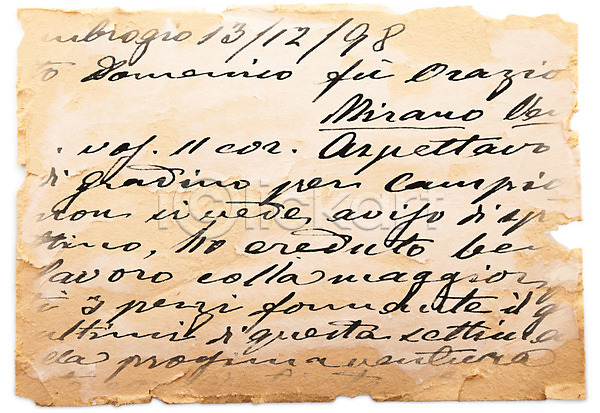 mbrogio 13/12/98
to Domenico fù Orazio
Mirano Ve
. vos. 11 cor. Aspettavo
di gradino per campio
non si vede, aviso di sp
ttino, ho creduto be
lavoro colla maggior
ti 3 pezzi formante il g
ultimi di questa settim
da prossima ventura
iclickart